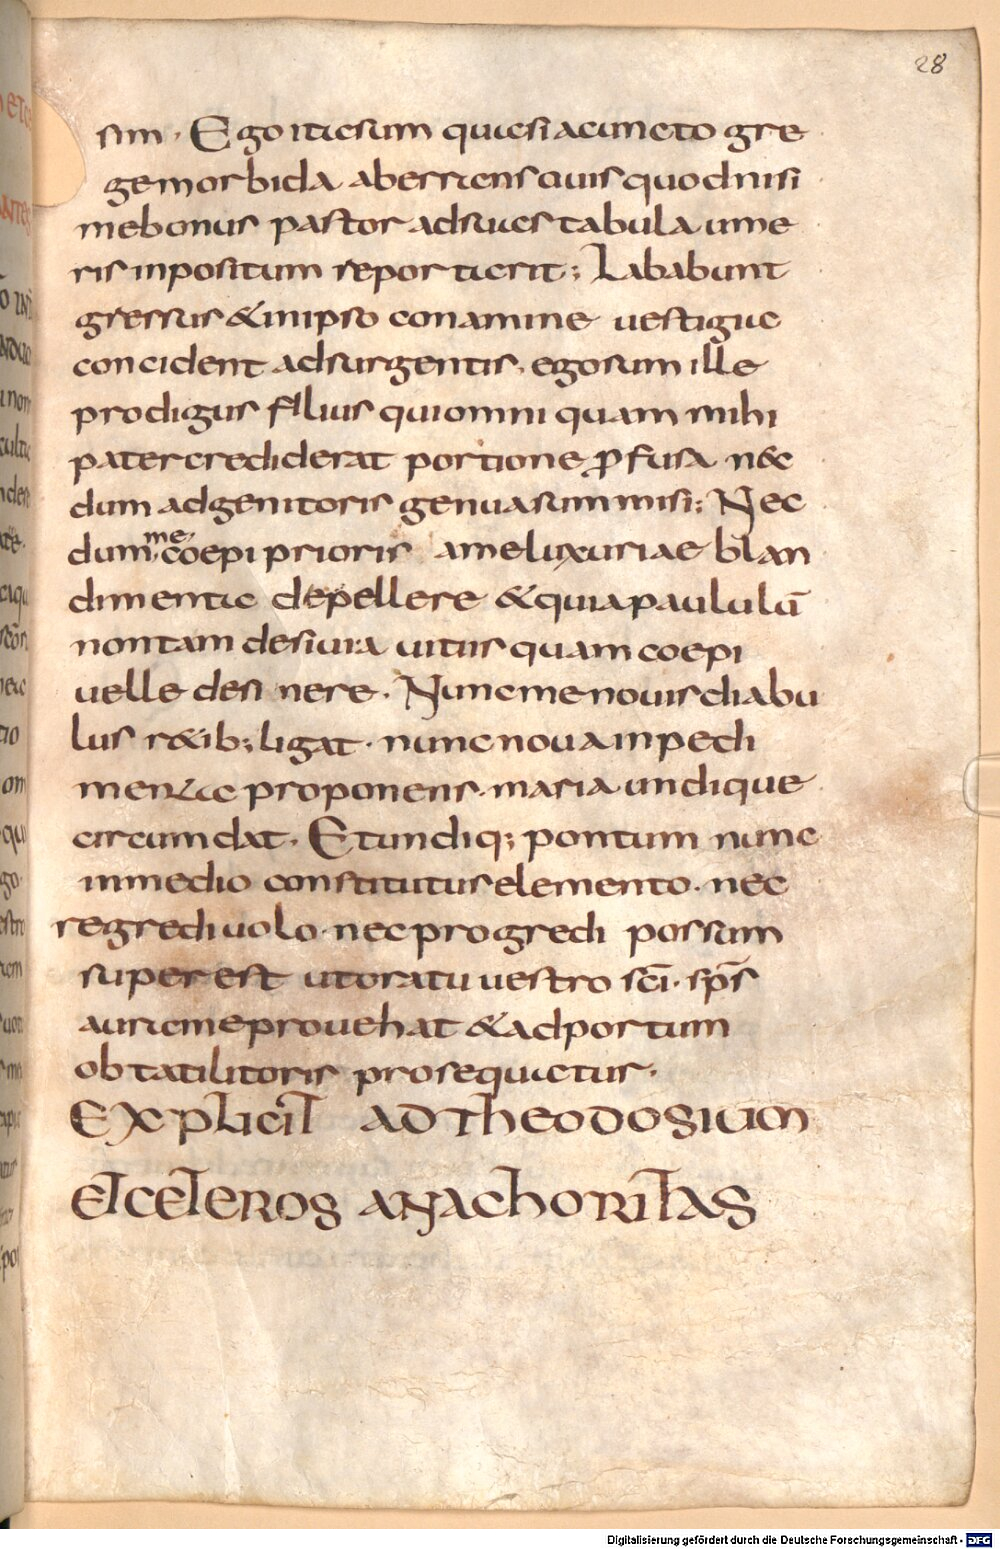 28
sim. Ego itaesum quaesi acuncto gre
gemorbida aberrensouis quodnisi
mebonus pastor adsuaestabula ume
ris inpositum reportaerit; Lababunt
gressus &inipso conamine uestigiae
concident adsurgentis, egosum ille
prodigus filius quiomni quam mihi
patercrediderat portione ꝓfusa n&c
dum adgenitoris genua summisi; Nec
dum me coepi prioris ameluxuriae blan
dimentiae depellere &quiapaululū
nontam desiuia uitiis quam coepi
uelle desi nere. Nuncmenouisdiabu
lus r&ib; ligat. nuncnouainpedi
mentae proponens. maria undique
circumdat. Etundiq; pontum nunc
inmedio constitutuselemento. nec
regrediuolo. necprogredi possum
superest utoratu uestro sc̄i. sp̄s
auraemeprouehat &adportum
obtatilitoris prosequaetur.
Explicit ad theodosium
et ceteros anachoritas
Digitalisierung gefördert durch die Deutsche Forschungsgemeinschaft - DFG